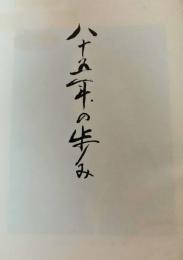 八十五年の歩み